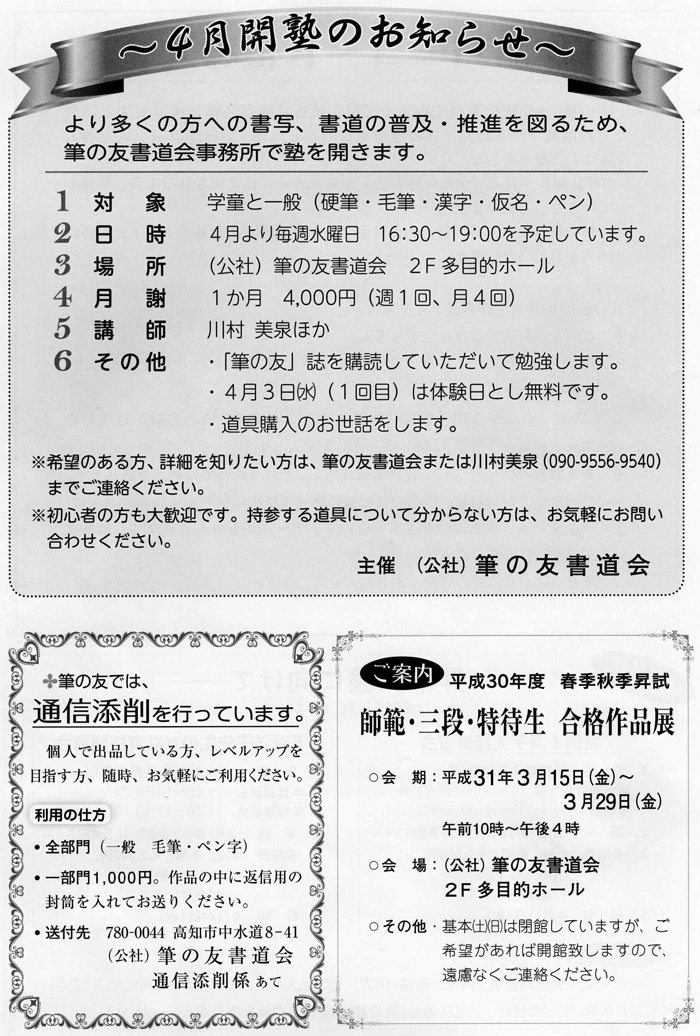 ～4月開塾のお知らせ～
より多くの方への書写、書道の普及・推進を図るため、
筆の友書道会事務所で塾を開きます。
1 対象 学童と一般（硬筆・毛筆・漢字・仮名・ペン）
2 日時 4月より毎週水曜日 16:30～19:00を予定しています。
3 場所 （公社）筆の友書道会 2F多目的ホール
4 月謝 1か月 4,000円（週1回、月4回）
5 講師 川村 美泉ほか
6 その他 ・「筆の友」誌を購読していただいて勉強します。
・4月3日㈬（1回目）は体験日とし無料です。
・道具購入のお世話をします。
※希望のある方、詳細を知りたい方は、筆の友書道会または川村美泉（090-9556-9540）
までご連絡ください。
※初心者の方も大歓迎です。持参する道具について分からない方は、お気軽にお問い
合わせください。
主催 （公社）筆の友書道会
✤筆の友では、
通信添削を行っています。
個人で出品している方、レベルアップを
目指す方、随時、お気軽にご利用ください。
利用の仕方
・全部門（一般 毛筆・ペン字）
・一部門1,000円。作品の中に返信用の
封筒を入れてお送りください。
・送付先 780-0044 高知市中水道8-41
（公社）筆の友書道会
通信添削係 あて
ご案内 平成30年度 春季秋季昇試
師範・三段・特待生 合格作品展
○会 期：平成31年3月15日(金)～
3月29日(金)
午前10時～午後4時
○会 場：（公社）筆の友書道会
2F多目的ホール
○その他・基本㈯㈰は閉館していますが、ご
希望があれば開館致しますので、
遠慮なくご連絡ください。